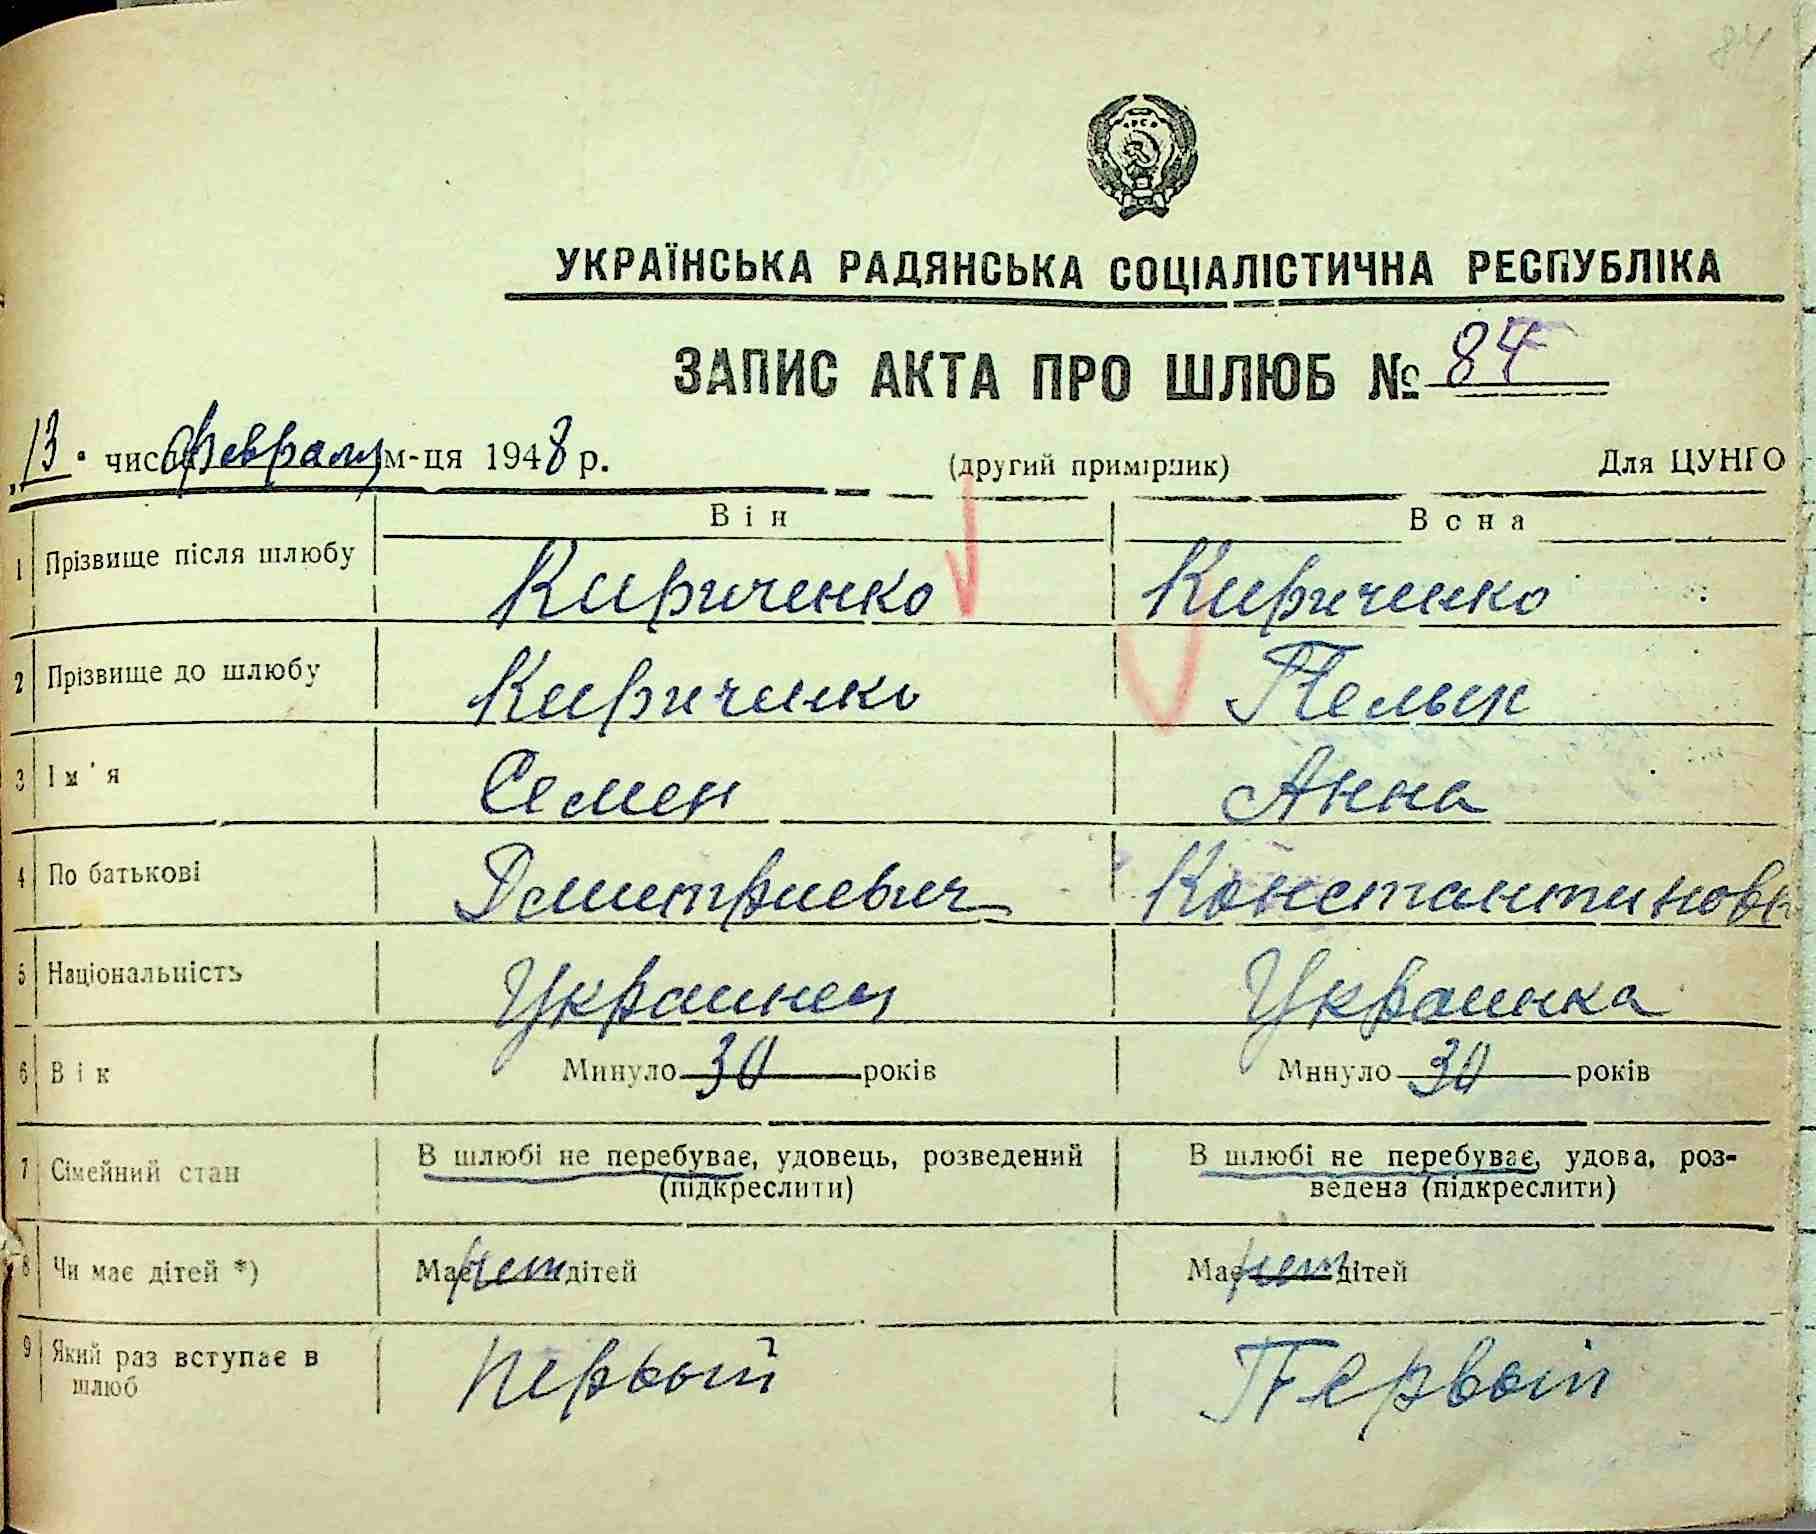 84
УКРАЇНСЬКА РАДЯНСЬКА СОЦІАЛІСТИЧНА РЕСПУБЛІКА
ЗАПИС АКТА ПРО ШЛЮБ № 84
13. числа февраля м-ця 1948 р. (другий примірник) Для ЦУНГО
Він Вона
1 Прізвище після шлюбу Кириченко Кириченко
2 Прізвище до шлюбу Кириченко
3 Ім'я Семен Анна
4 По батькові Дмитриевич Константиновн
5 Національність Украинец Украинка
6 Вік Минуло 30 років Минуло 30 років
7 Сімейний стан В шлюбі не перебуває, удовець, розведений В шлюбі не перебуває, удова, роз-
(підкреслити) ведена (підкреслити)
8 Чи має дітей *) Має нет дітей Має нет дітей
9 Який раз вступає в первый Первый
шлюб